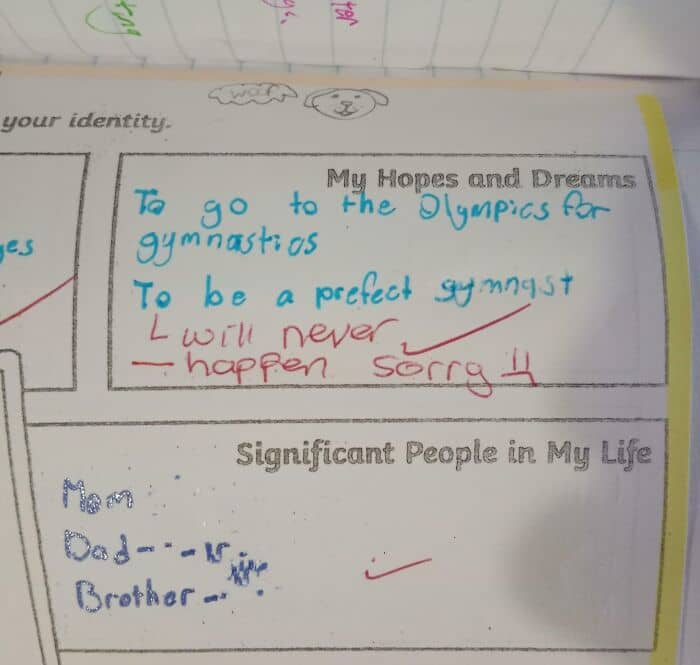 woof
your identity.
My Hopes and Dreams
To go to the Olympics for
gymnastics
To be a prefect gymnast
will never
happen sorry !!
Significant People in My Life
Mom
Dad
Brother